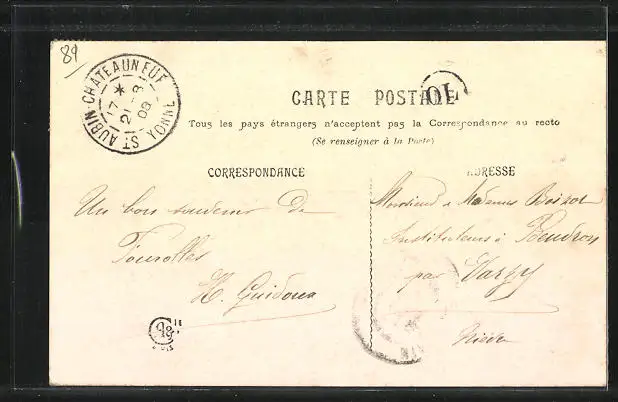 89
ST AUBIN-CHATEAUNEUF YONNE
17 *
21 -8
09
CARTE POSTALE
OL
Tous les pays étrangers n'acceptent pas la Correspondance au recto
(Se renseigner à la Poste)
CORRESPONDANCE
ADRESSE
Un bon souvenir de
Fourolles
H. Guidoux
Monsieur & Madame
Instituteurs à Beudron
par Varzy
Nièvre